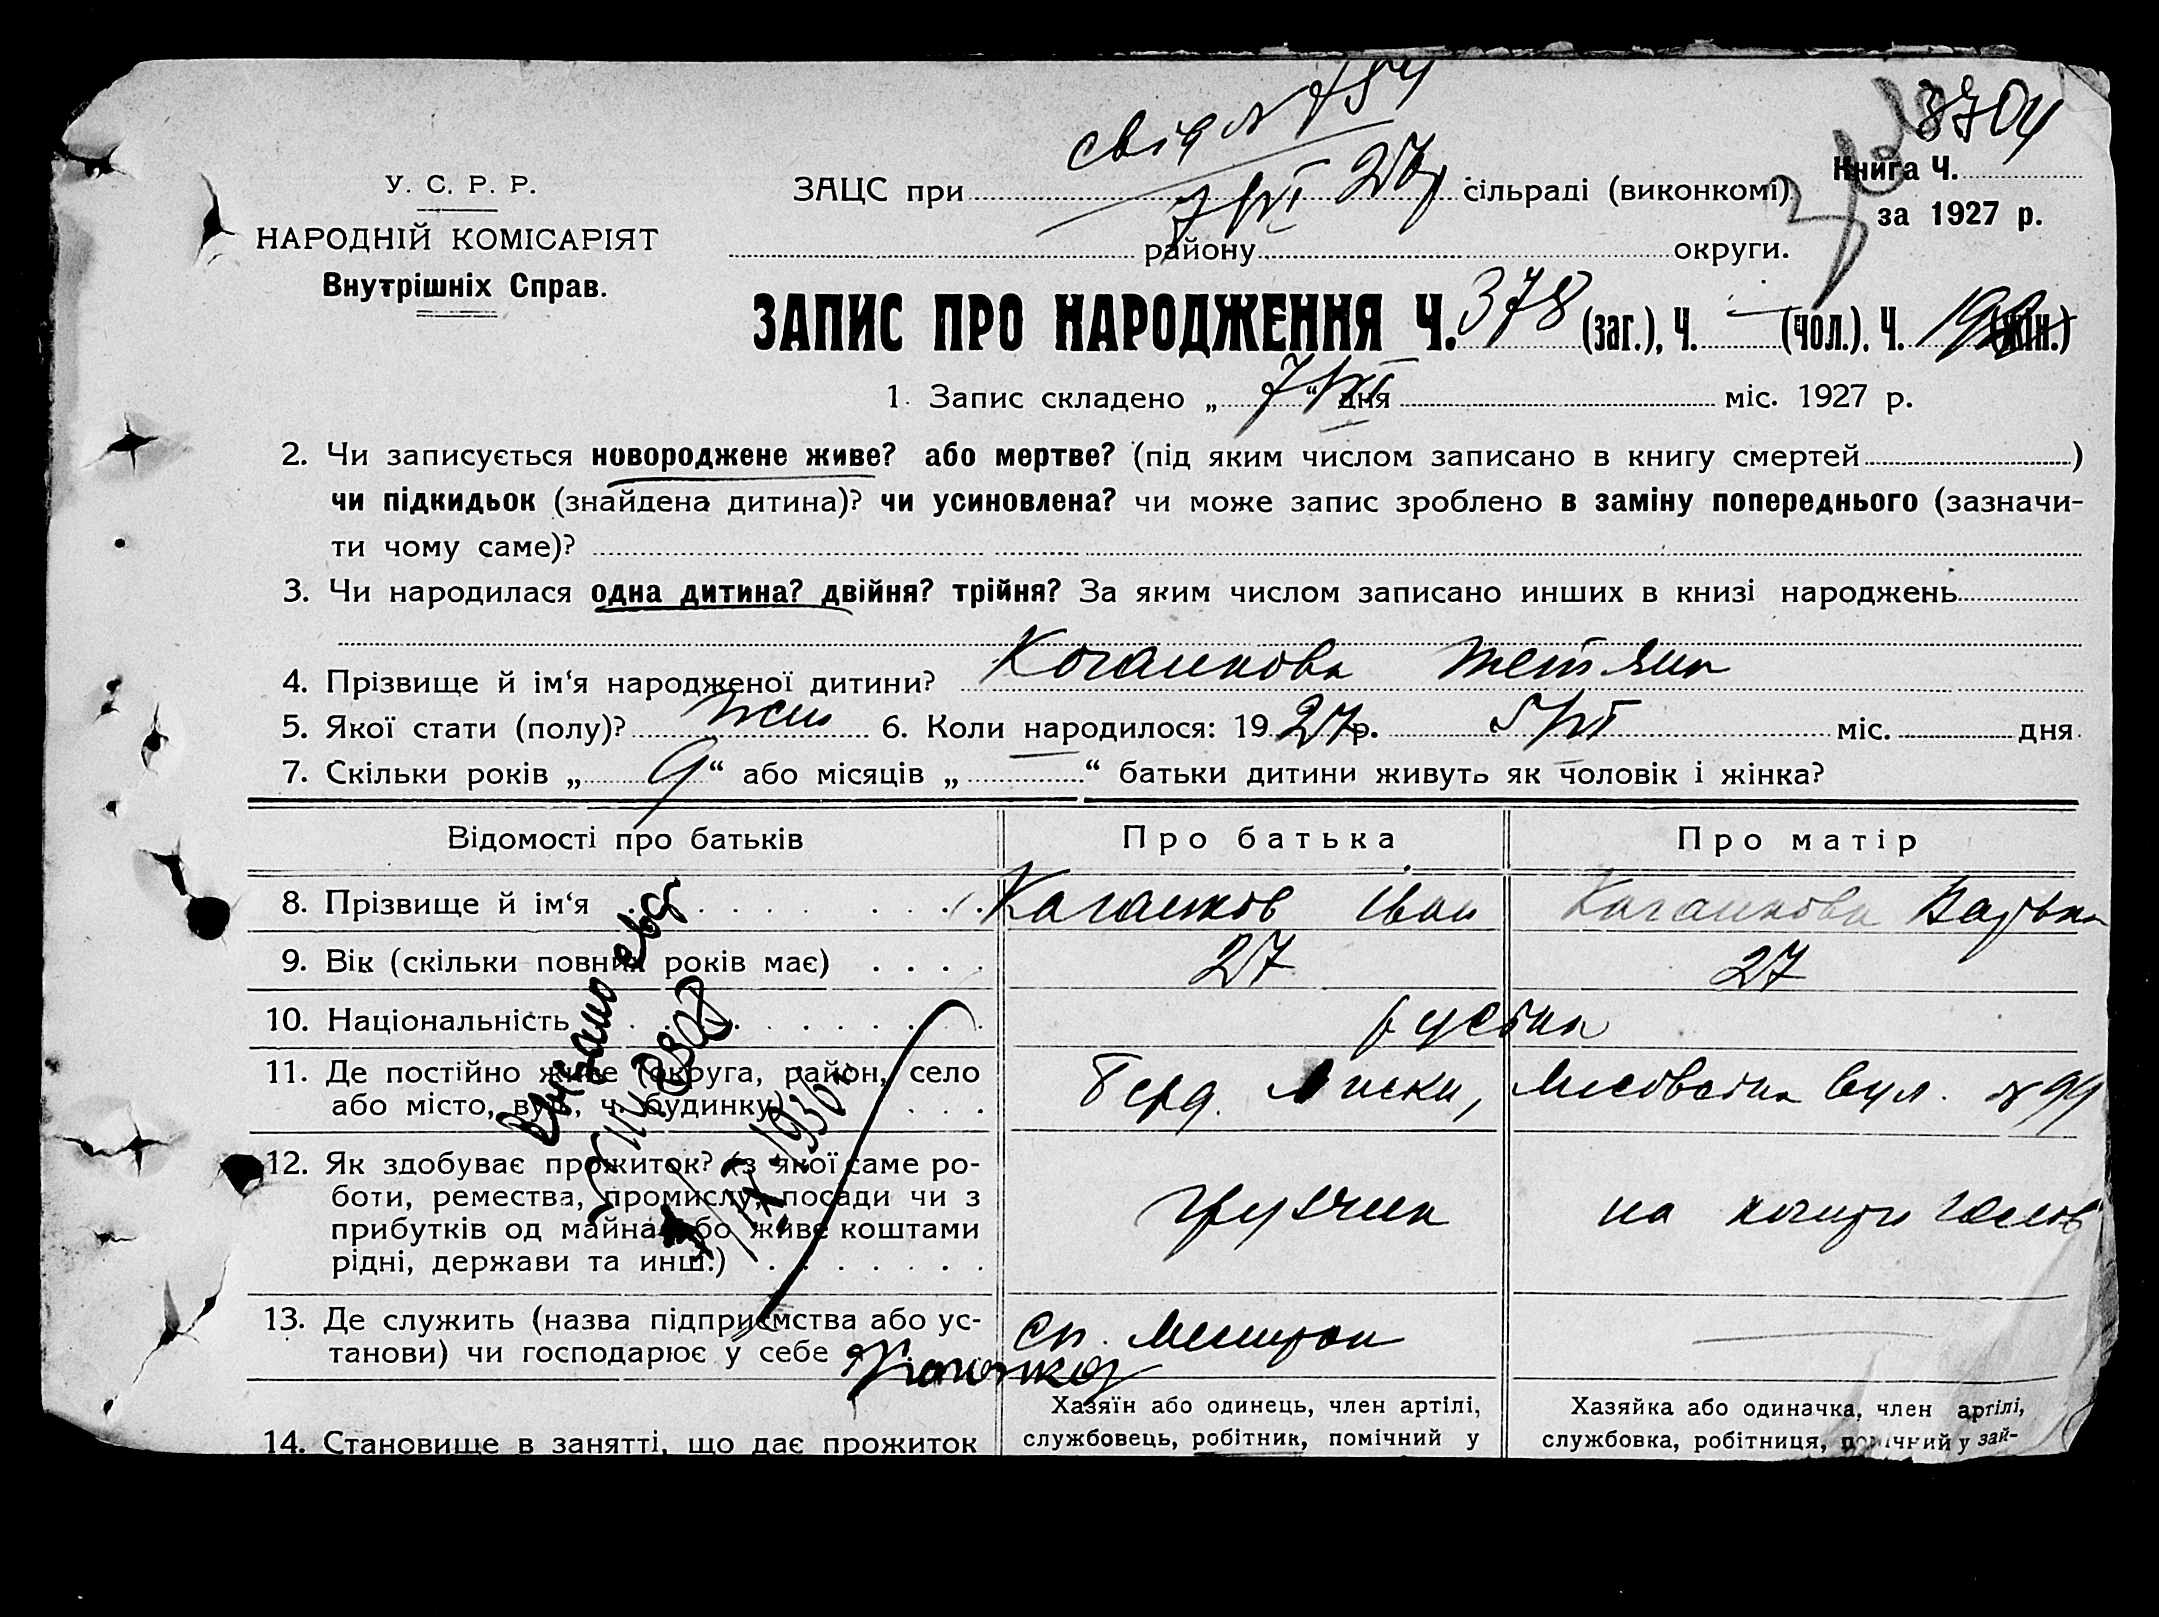 свід № 784
3704
У. С. Р. Р.
ЗАЦС при 7/VI 27р сільраді (виконкомі)
Книга Ч.
за 1927 р.
НАРОДНІЙ КОМІСАРІЯТ
району округи.
Внутрішніх Справ.
ЗАПИС ПРО НАРОДЖЕННЯ Ч. 378 (заг.), Ч. — (чол.). Ч. (жін.)
1. Запис складено „ 7/VI “ дня міс. 1927 р.
2. Чи записується новороджене живе? або мертве? (під яким числом записано в книгу смертей )
чи підкидьок (знайдена дитина)? чи усиновлена? чи може запис зроблено в заміну попереднього (зазначи-
ти чому саме)?
3. Чи народилася одна дитина? двійня? трійня? За яким числом записано инших в книзі народжень
4. Прізвище й ім‘я народженої дитини?
5. Якої стати (полу)? жін 6. Коли народилося: 19 27 р. 5/VI міс. дня
7. Скільки років „ 9 “ або місяців „ — “ батьки дитини живуть як чоловік і жінка?
Відомості про батьків
Про батька
Про матір
8. Прізвище й ім‘я
Іван
9. Вік (скільки повних років має)
27
27
10. Національність
руські
11. Де постійно живе (округа, район, село
або місто, вул., ч. будинку)
Берд. Лиски, вул. № 99
12. Як здобуває прожиток? (з якої саме ро-
боти, ремества, промислу, посади чи з
прибутків од майна або живе коштами
рідні, держави та инш.)
грузчик
на кошти
13. Де служить (назва підприємства або ус-
танови) чи господарює у себе
Сп.
—
14. Становище в занятті, що дає прожиток
Хазяїн або одинець, член артілі,
службовець, робітник, помічний у
Хазяйка або одиначка, член артілі,
службовка, робітниця, помічний у зай-